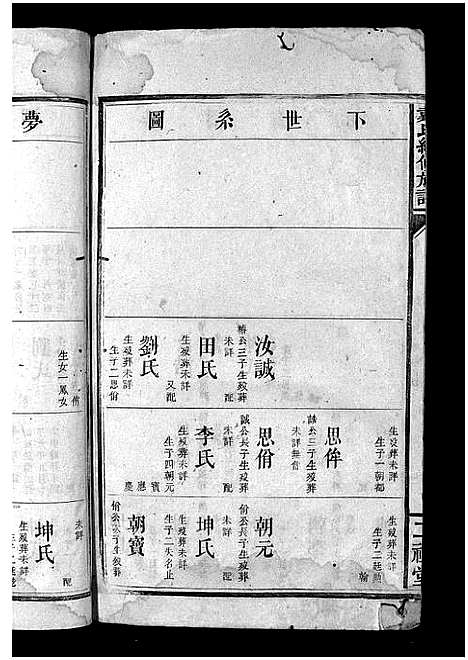 下世系圖
汝誠
椿公三子生歿葬
未詳 配
田氏
生歿葬未詳
又配
劉氏
生歿葬未詳
生子二思俏
生歿葬未詳
生子一朝都
思侔
誠公三子生歿葬
未詳無嗣
思俏
誠公長子生歿葬
未詳 配
李氏
生歿葬未詳
生子四朝元
寶
應
慶
生歿葬未詳
生子二廷
翰
朝元
俏公長子生歿葬
未詳 配
坤氏
生歿葬未詳
生子二失名止
朝寶
俏公二子生歿葬
夢
生女一鳳女
未詳
配
坤氏
生歿葬未詳